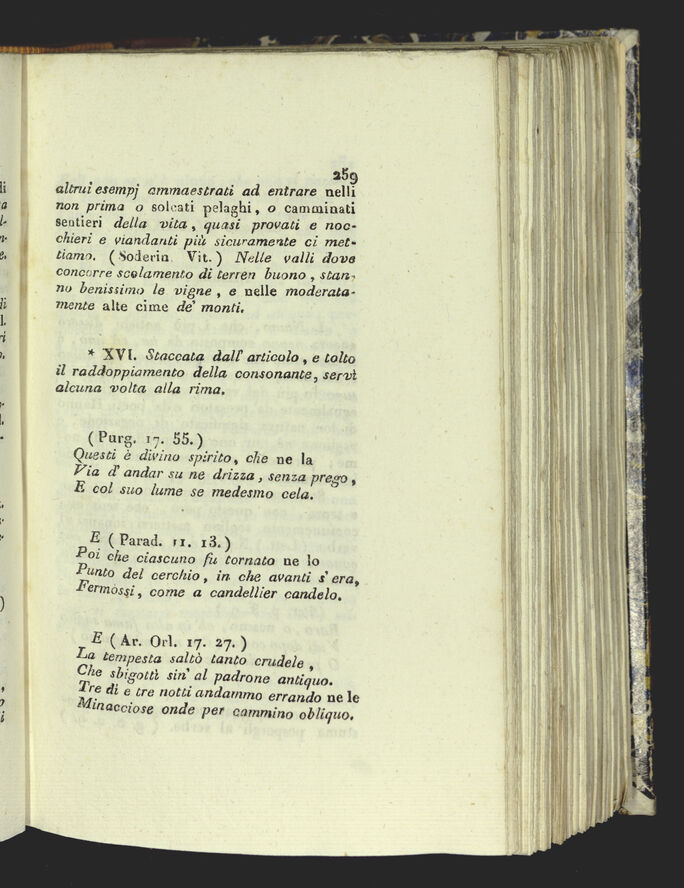 259
altrui esempj ammaestrati ad entrare nelli
non prima o solcati pelaghi, o camminati
sentieri della vita, quasi provati e noc-
chieri e viandanti più sicuramente ci met-
tiamo. (Soderin. Vit.) Nelle valli dove
concorre scolamento di terren buono, stan-
no benissimo le vigne, e nelle moderata-
mente alte cime de' monti.
* XVI. Staccata dall' articolo, e tolto
il raddoppiamento della consonante, servì
alcuna volta alla rima.
(Purg. 17. 55.)
Questi è divino spirito, che ne la
Via d' andar su ne drizza, senza prego,
E col suo lume se medesmo cela.
E (Parad. 11. 13.)
Poi che ciascuno fu tornato ne lo
Punto del cerchio, in che avanti s' era,
Fermossi, come a candellier candelo.
E (Ar. Orl. 17. 27.)
La tempesta saltò tanto crudele,
Che sbigottì sin' al padrone antiquo.
Tre dì e tre notti andammo errando ne le
Minacciose onde per cammino obliquo.